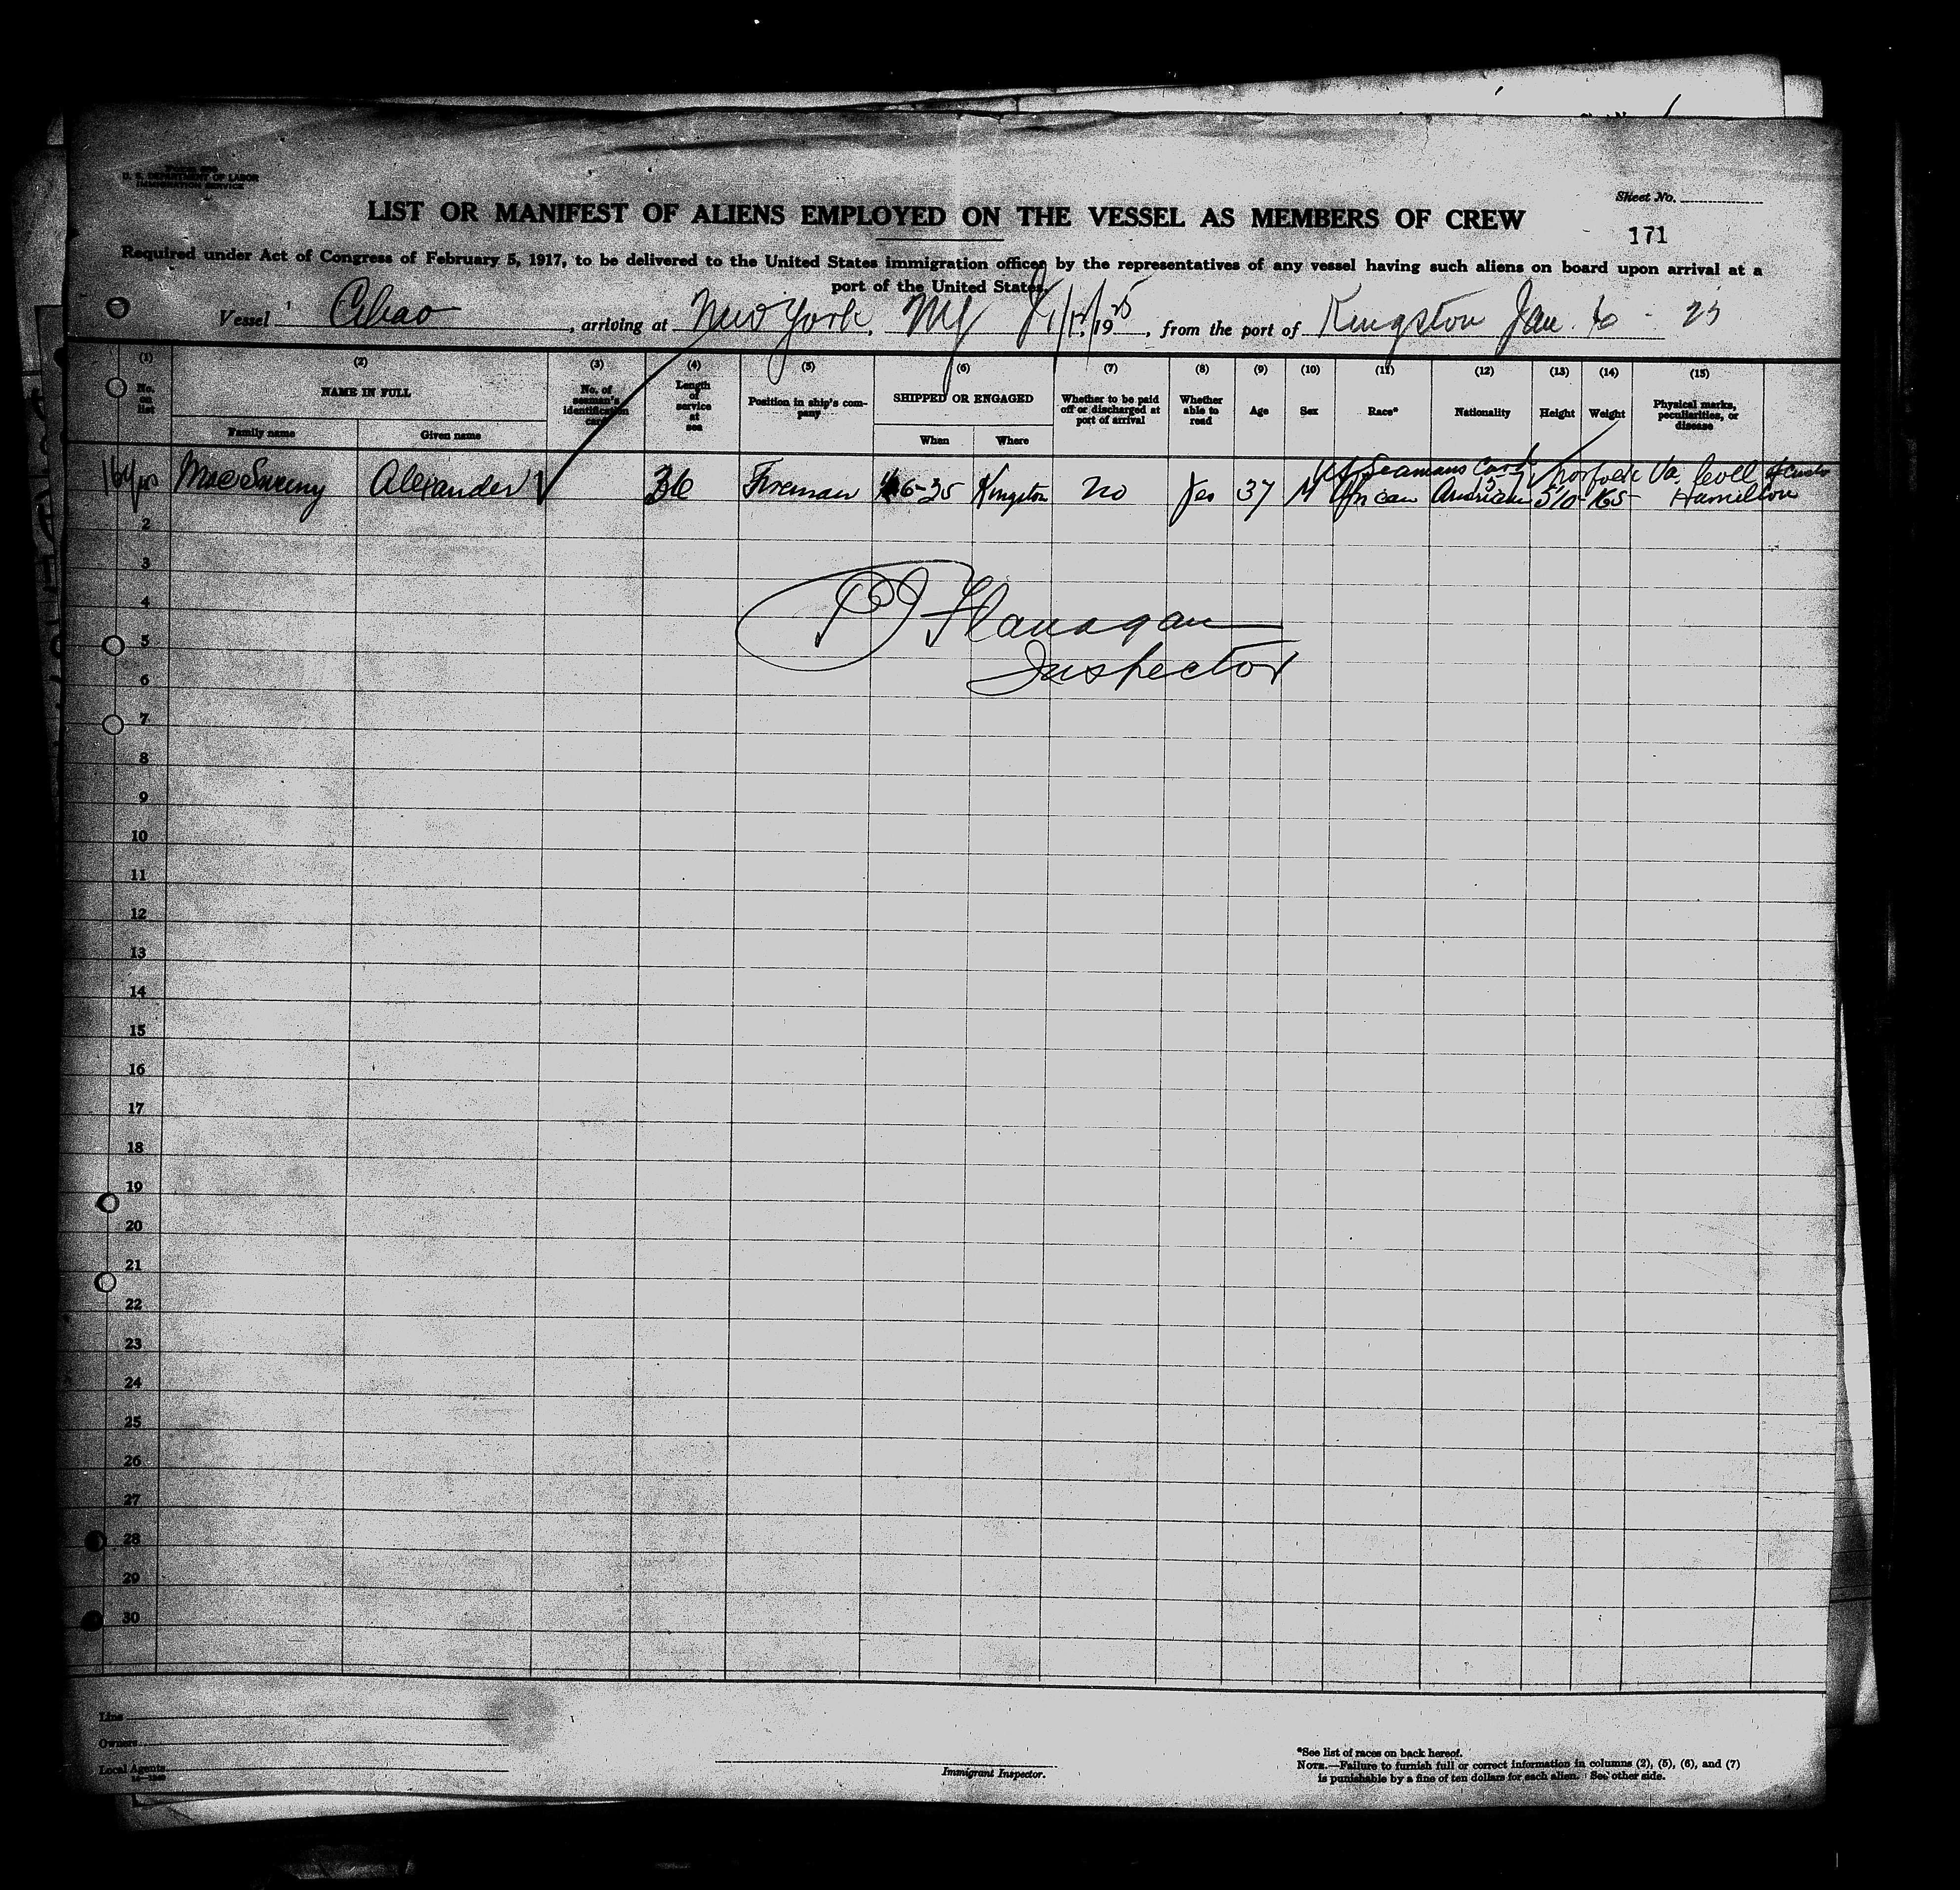 U. S. DEPARTMENT OF LABOR
IMMIGRATION SERVICE
Sheet No.
LIST OR MANIFEST OF ALIENS EMPLOYED ON THE VESSEL AS MEMBERS OF CREW
171
Required under Act of Congress of February 5, 1917, to be delivered to the United States immigration officer by the representatives of any vessel having such aliens on board upon arrival at a
port of the United States.
Vessel Cibao, arriving at New York, NY 1/12/1925, from the port of Kingston Jan. 6 - 25
(1) (2) (3) (4) (5) (6) (7) (8) (9) (10) (11) (12) (13) (14) (15)
No. on list
NAME IN FULL
Family name
Given name
No. of seaman's identification card
Length of service at sea
Position in ship's company
SHIPPED OR ENGAGED
When
Where
Whether to be paid off or discharged at port of arrival
Whether able to read
Age
Sex
Race*
Nationality
Height
Weight
Physical marks, peculiarities, or disease
Seamans Card Norfolk Va. Coll of
Alexander 36 Fireman 6-25 Kingston no Yes 37 M African American 5'10 165 Hamilton
2
3
P J Flanagan
4
5
Inspector
6
7
8
9
10
11
12
13
14
15
16
17
18
19
20
21
22
23
24
25
26
27
28
29
30
Line
Owners
Local Agents
Immigrant Inspector.
*See list of races on back hereof.
NOTE.—Failure to furnish full or correct information in columns (2), (5), (6), and (7)
is punishable by a fine of ten dollars for each alien. See other side.